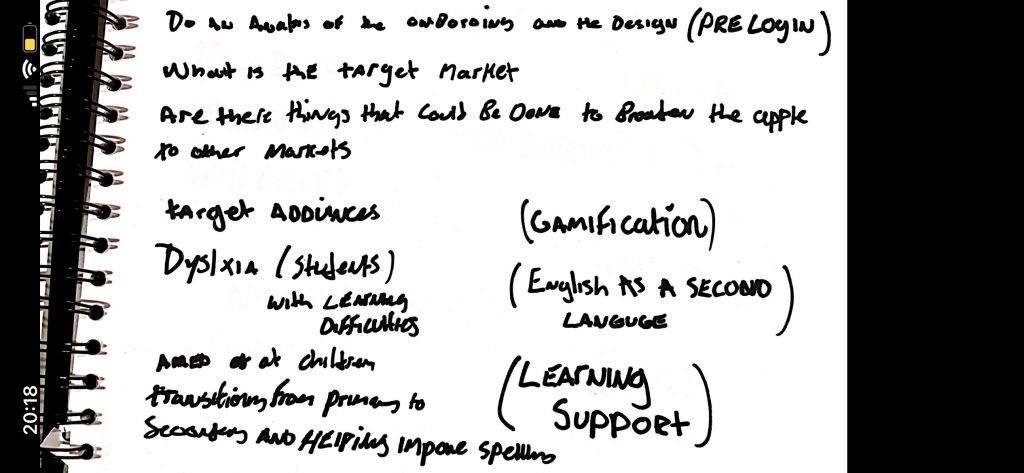 Do an Analis of the onBoroing and the Design (PRE LOGIN)
What is the target Market
Are there things that could Be Done to Broaten the apple
to other Markets
target ADDINCES
(GAMIFication)
Dyslxia (students)
with LEARNING
DifficultiES
(English AS A SECOND
LANGUGE)
AMED at children
transitioning from primary to
Secondery AND HElPING impove spelling
(LEARNING
Support)
20:18